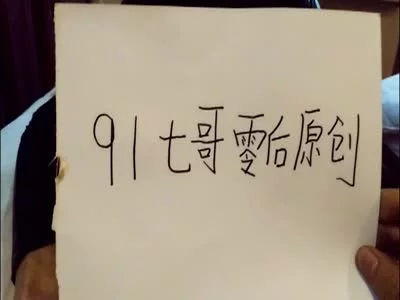 91七哥零后原创